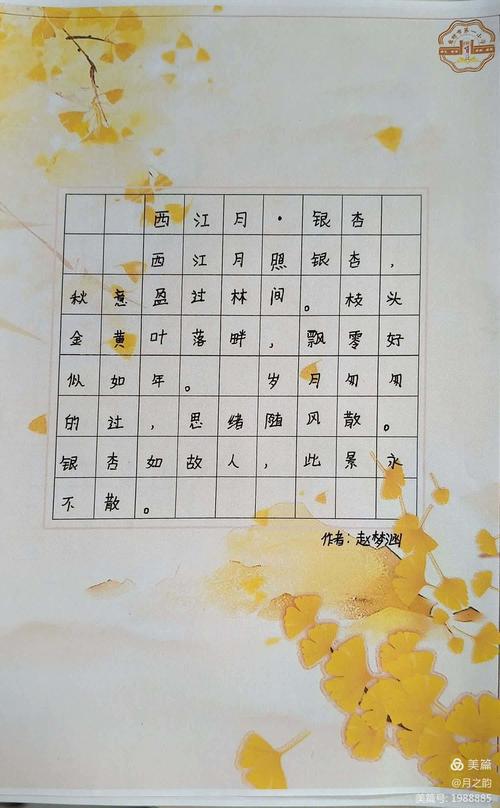 西江月·银杏
西江月照银杏，
秋意盈过林间。枝头
金黄叶落畔，飘零好
似如年。 岁月匆匆
的过，思绪随风散。
银杏如故人，此景永
不散。
作者：赵梦涵
美篇
@月之韵
美篇号：1988885